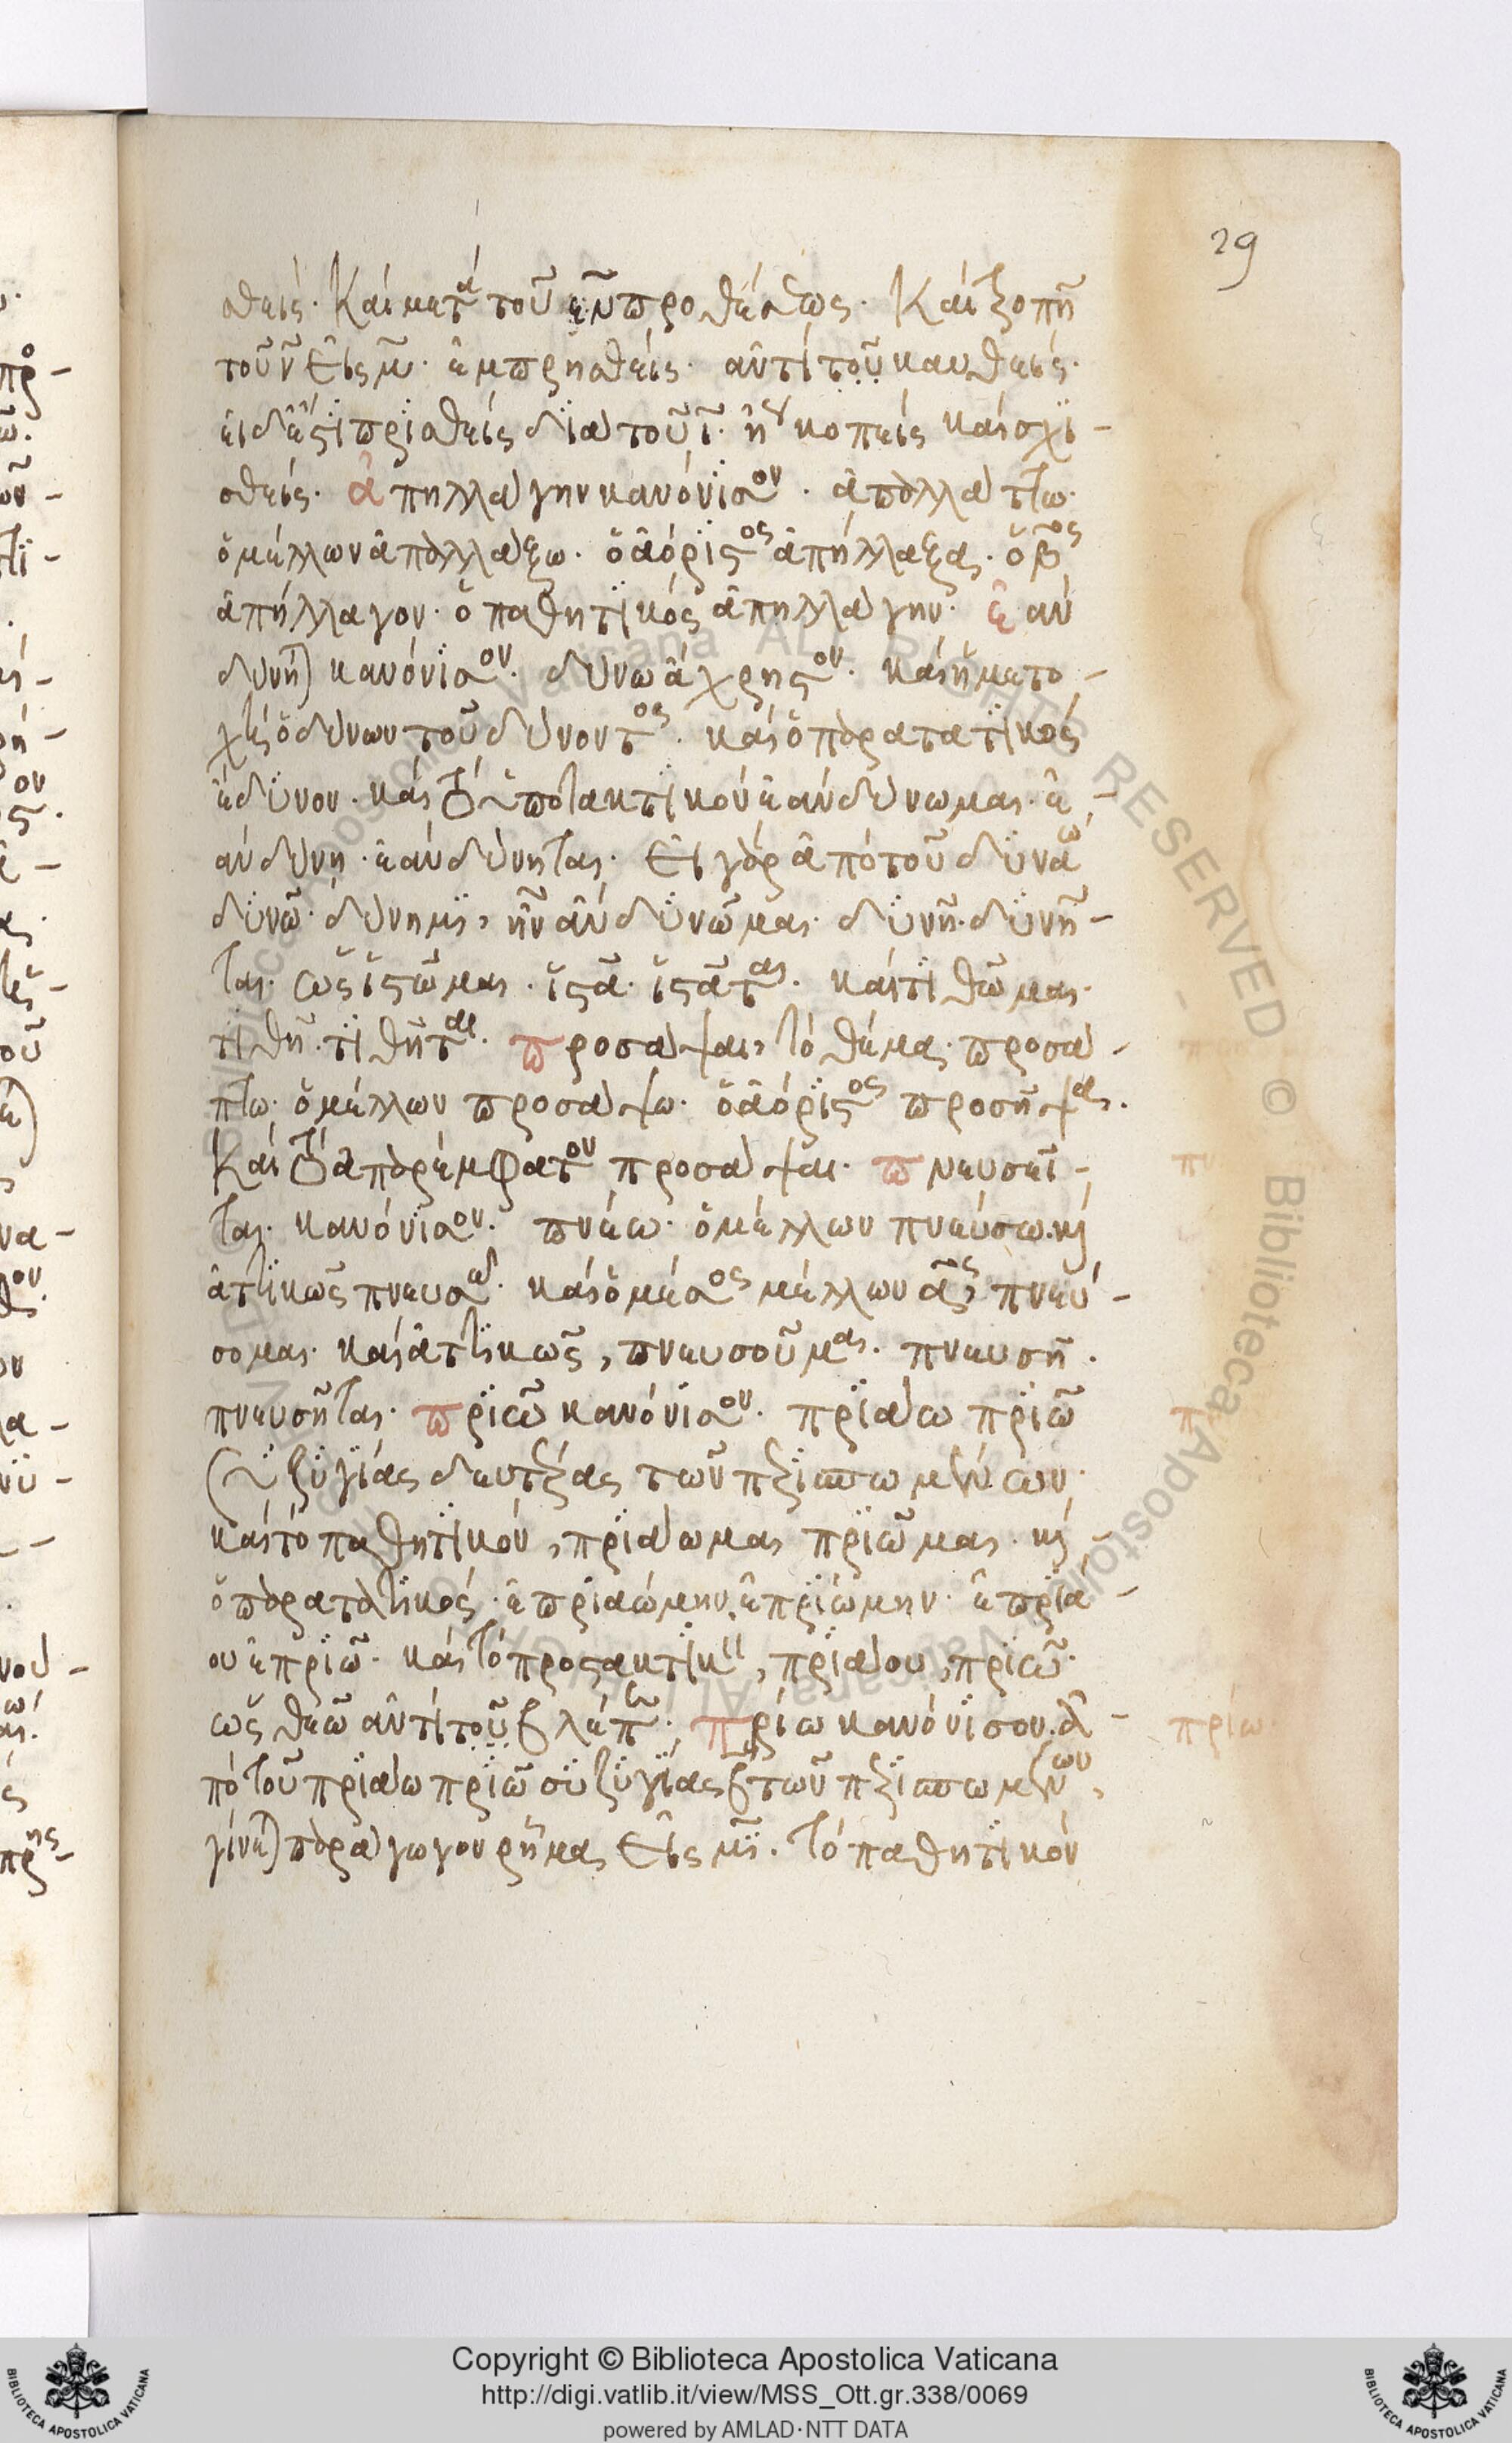 29
σθείς. καὶ μετὰ τοῦ ἐν προθέσεως. καὶ τροπῇ
τοῦ ν εἰς μ. ἐμπρησθείς. ἀντὶ τοῦ καυθείς.
εἰ δέ ἐστι πρισθεὶς διὰ τοῦ ι. ἢ κοπεὶς καὶ σχι-
σθείς. ἀπηλλάγην κανόνισον. ἀπαλλάττω.
ὁ μέλλων ἀπαλλάξω. ὁ ἀόριστος ἀπήλλαξας. ὁ βος
ἀπήλλαγον. ὁ παθητικός ἀπηλλάγην. ἐὰν
δύνηται κανόνισον. δύνω ἄχρηστον. καὶ ἡ μετο-
χὴ ὁ δύνων τοῦ δύνοντος. καὶ ὁ παρατατικός
ἔδυνον. καὶ τὸ ὑποτακτικὸν ἐὰν δύνωμαι. ἐ-
ὰν δύνῃ. ἐὰν δύνηται. εἰ γὰρ ἀπὸ τοῦ δυνάω
δυνῶ. δύνημι, ἦν ἂν δυνῶμαι. δυνῇ. δυνῆ-
ται. ὡς ἱστῶμαι. ἱστᾶ. ἱστᾶται. καὶ τιθῶμαι.
τιθῇ. τιθῆται. προσάψαι, τὸ θέμα. προσά-
πτω. ὁ μέλλων προσάψω. ὁ ἀόριστος προσῆψας.
καὶ τὸ ἀπαρέμφατον προσάψαι. πνευσεῖ-
ται. κανόνισον. πνέω. ὁ μέλλων πνεύσω. καὶ
ἀττικῶς πνευσῶ. καὶ ὁ μέσος μέλλων ας πνεύ-
σομαι. καὶ ἀττικῶς, πνευσοῦμαι. πνευσῇ.
πνευσῆται. πριῶ κανόνισον. πριάω πριῶ
συζυγίας δευτέρας τῶν περισπωμένων.
καὶ τὸ παθητικόν, πριάωμαι πριῶμαι. καὶ
ὁ παρατατικός. ἐπριαώμην. ἐπριώμην. ἐπριά-
ου ἐπριῶ. καὶ τὸ προστακτικ, πριάου, πριῶ.
ὡς θεῶ ἀντὶ τοῦ βλέπε. πρίω κανόνισον. ἀ-
πὸ τοῦ πριάω πριῶ συζυγίας β τῶν περισπωμένων,
γίνεται παράγωγον ῥῆμα εἰς μι. τὸ παθητικὸν
πρίω
Copyright © Biblioteca Apostolica Vaticana
http://digi.vatlib.it/view/MSS_Ott.gr.338/0069
powered by AMLAD·NTT DATA